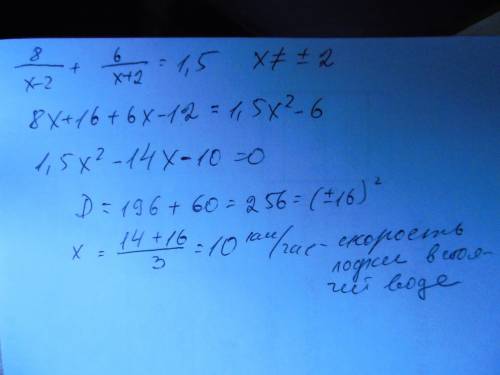 8/(x-2) + 6/(x+2) = 1,5    x ≠ ± 2
8x+16+6x-12 = 1,5x² - 6
1,5x² - 14x - 10 = 0
D = 196 + 60 = 256 = (±16)²
x = (14+16)/3 = 10 км/час - скорость
лодки в стоя-
чей воде